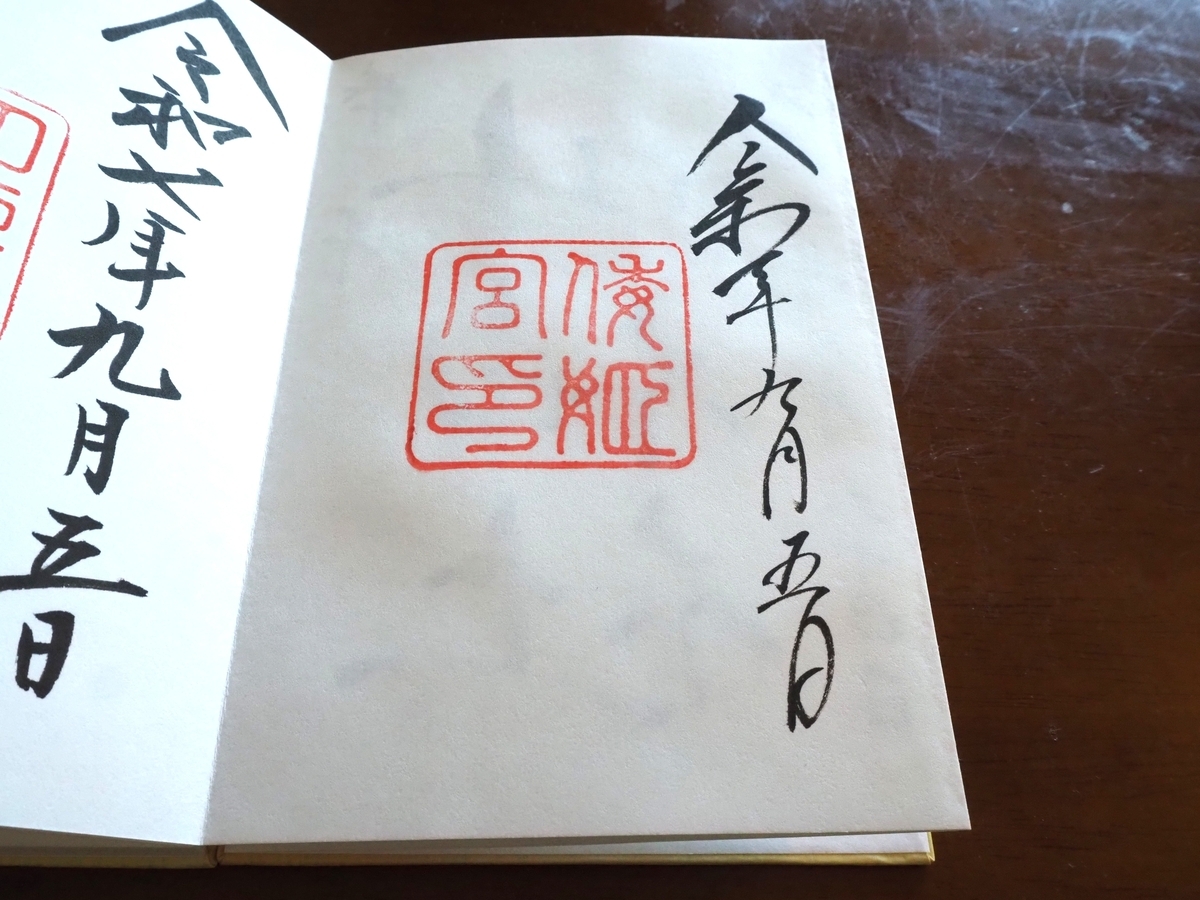 令和六年九月五日
倭姫
宮印
令和六年九月五日